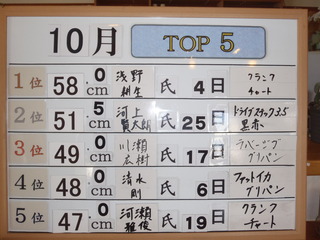 10月 TOP 5
1位 58.0cm 浅野 樹生 氏 4日 クランク チャート
2位 51.5cm 河上 賢太朗 氏 25日 ドライブスティック3.5 黒赤
3位 49.0cm 川瀬 広樹 氏 17日 グリパン
4位 48.0cm 清水 剛 氏 6日 ファットイカ グリパン
5位 47.0cm 河瀬 雅俊 氏 19日 クランク チャート